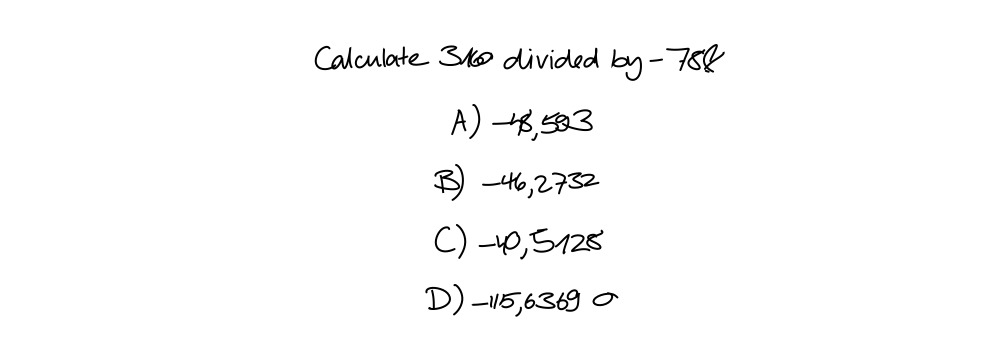 Calculate 3160 divided by -78
A) -48,593
B) -46,2732
C) -40,5128
D) -115,6369